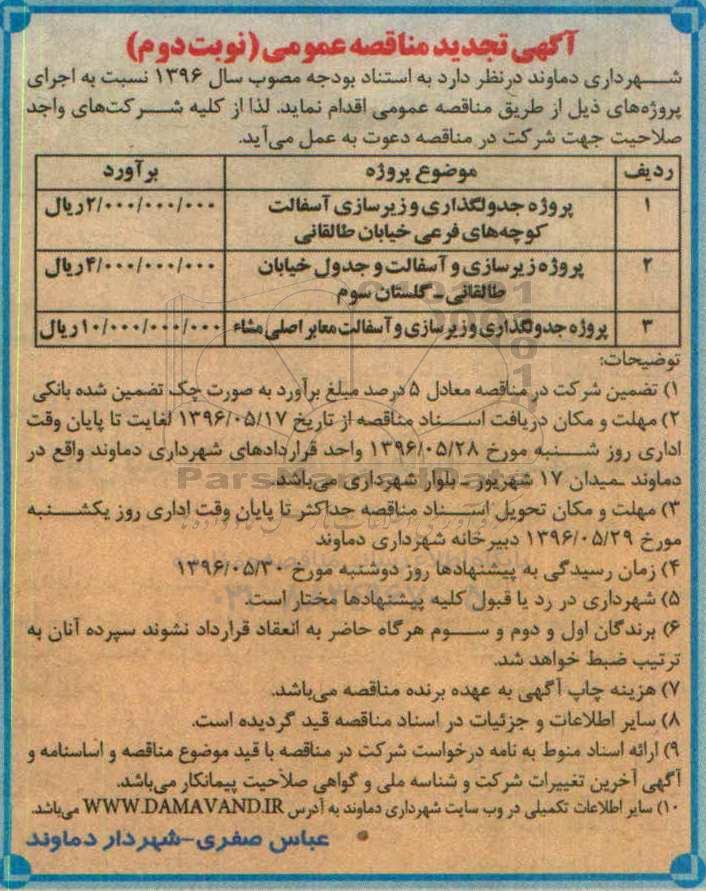 آگهی تجدید مناقصه عمومی (نوبت دوم)
شهرداری دماوند درنظر دارد به استناد بودجه مصوب سال ۱۳۹۶ نسبت به اجرای
پروژه‌های ذیل از طریق مناقصه عمومی اقدام نماید. لذا از کلیه شرکت‌های واجد
صلاحیت جهت شرکت در مناقصه دعوت به عمل می‌آید.
ردیف موضوع پروژه برآورد
۱ پروژه جدولگذاری و زیرسازی آسفالت ۲/۰۰۰/۰۰۰/۰۰۰ریال
کوچه‌های فرعی خیابان طالقانی
۲ پروژه زیرسازی و آسفالت و جدول خیابان ۴/۰۰۰/۰۰۰/۰۰۰ریال
طالقانی ـ گلستان سوم
۳ پروژه جدولگذاری و زیرسازی و آسفالت معابر اصلی مشاء ۱۰/۰۰۰/۰۰۰/۰۰۰ریال
توضیحات:
۱) تضمین شرکت در مناقصه معادل ۵ درصد مبلغ برآورد به صورت چک تضمین شده بانکی
۲) مهلت و مکان دریافت اسناد مناقصه از تاریخ ۱۳۹۶/۰۵/۱۷ لغایت تا پایان وقت
اداری روز شنبه مورخ ۱۳۹۶/۰۵/۲۸ واحد قراردادهای شهرداری دماوند واقع در
دماوند ـمیدان ۱۷ شهریور ـ بلوار شهرداری می‌باشد.
ParsNamadData
۳) مهلت و مکان تحویل اسناد مناقصه حداکثر تا پایان وقت اداری روز یکشنبه
مورخ ۱۳۹۶/۰۵/۲۹ دبیرخانه شهرداری دماوند
۴) زمان رسیدگی به پیشنهادها روز دوشنبه مورخ ۱۳۹۶/۰۵/۳۰
۵) شهرداری در رد یا قبول کلیه پیشنهادها مختار است.
۶) برندگان اول و دوم و سوم هرگاه حاضر به انعقاد قرارداد نشوند سپرده آنان به
ترتیب ضبط خواهد شد.
۷) هزینه چاپ آگهی به عهده برنده مناقصه می‌باشد.
۸) سایر اطلاعات و جزئیات در اسناد مناقصه قید گردیده است.
۹) ارائه اسناد منوط به نامه درخواست شرکت در مناقصه با قید موضوع مناقصه و اساسنامه و
آگهی آخرین تغییرات شرکت و شناسه ملی و گواهی صلاحیت پیمانکار می‌باشد.
۱۰) سایر اطلاعات تکمیلی در وب سایت شهرداری دماوند به آدرس WWW.DAMAVAND.IR می‌باشد.
عباس صفری-شهردار دماوند